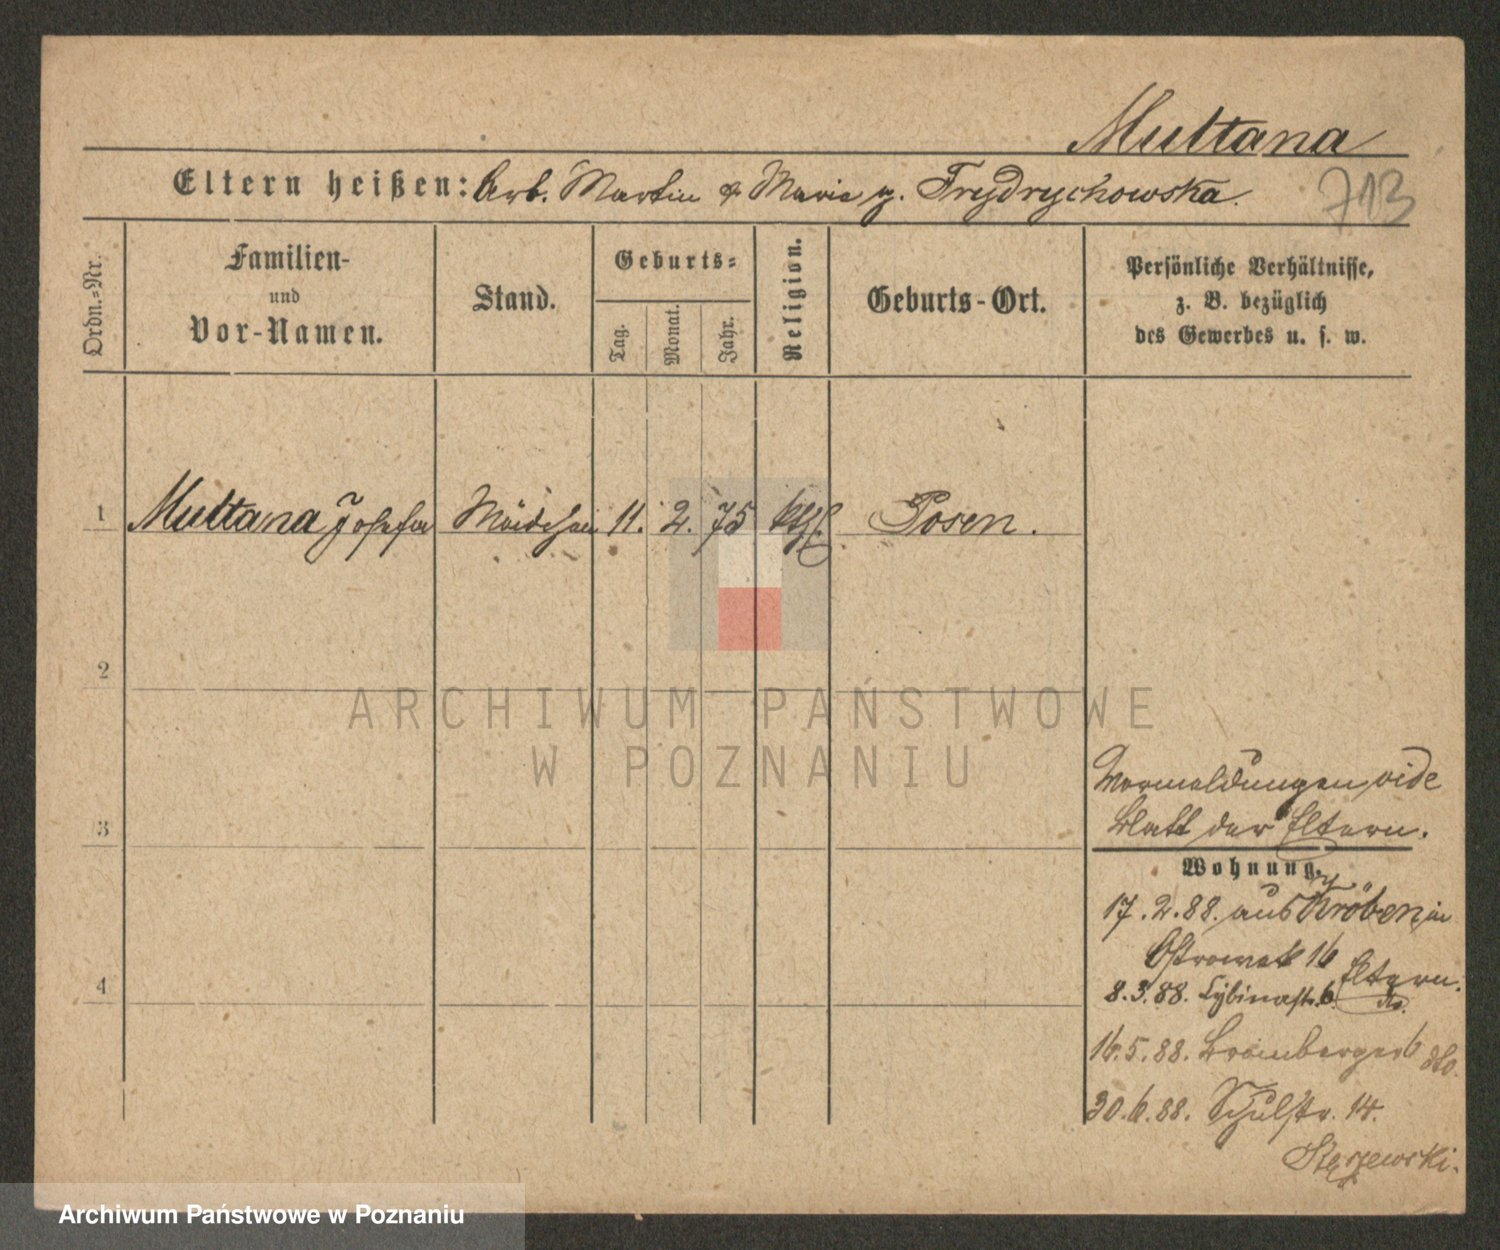 Multana
Eltern heißen: Arb. Martin & Marie g. Frydrychowska.
713
Ordn.-Nr.
Familien-
und
Vor-Namen.
Stand.
Geburts-
Tag.
Monat.
Jahr.
Religion.
Geburts-Ort.
Persönliche Verhältnisse,
z. B. bezüglich
des Gewerbes u. s. w.
1 Multana Josefa Mädchen 11. 2. 75 kth. Posen.
2
ARCHIWUM PAŃSTWOWE
W POZNANIU
3
Vormeldungen vide
Blatt der Eltern.
Wohnung.
17.2.88. aus Kröben in
Ostrowek 16 Eltern.
4
8.3.88. Cybinastr. 6. do.
16.5.88. Bromberger 6 dto.
30.6.88. Schulstr. 14.
Stęszewski.
Archiwum Państwowe w Poznaniu